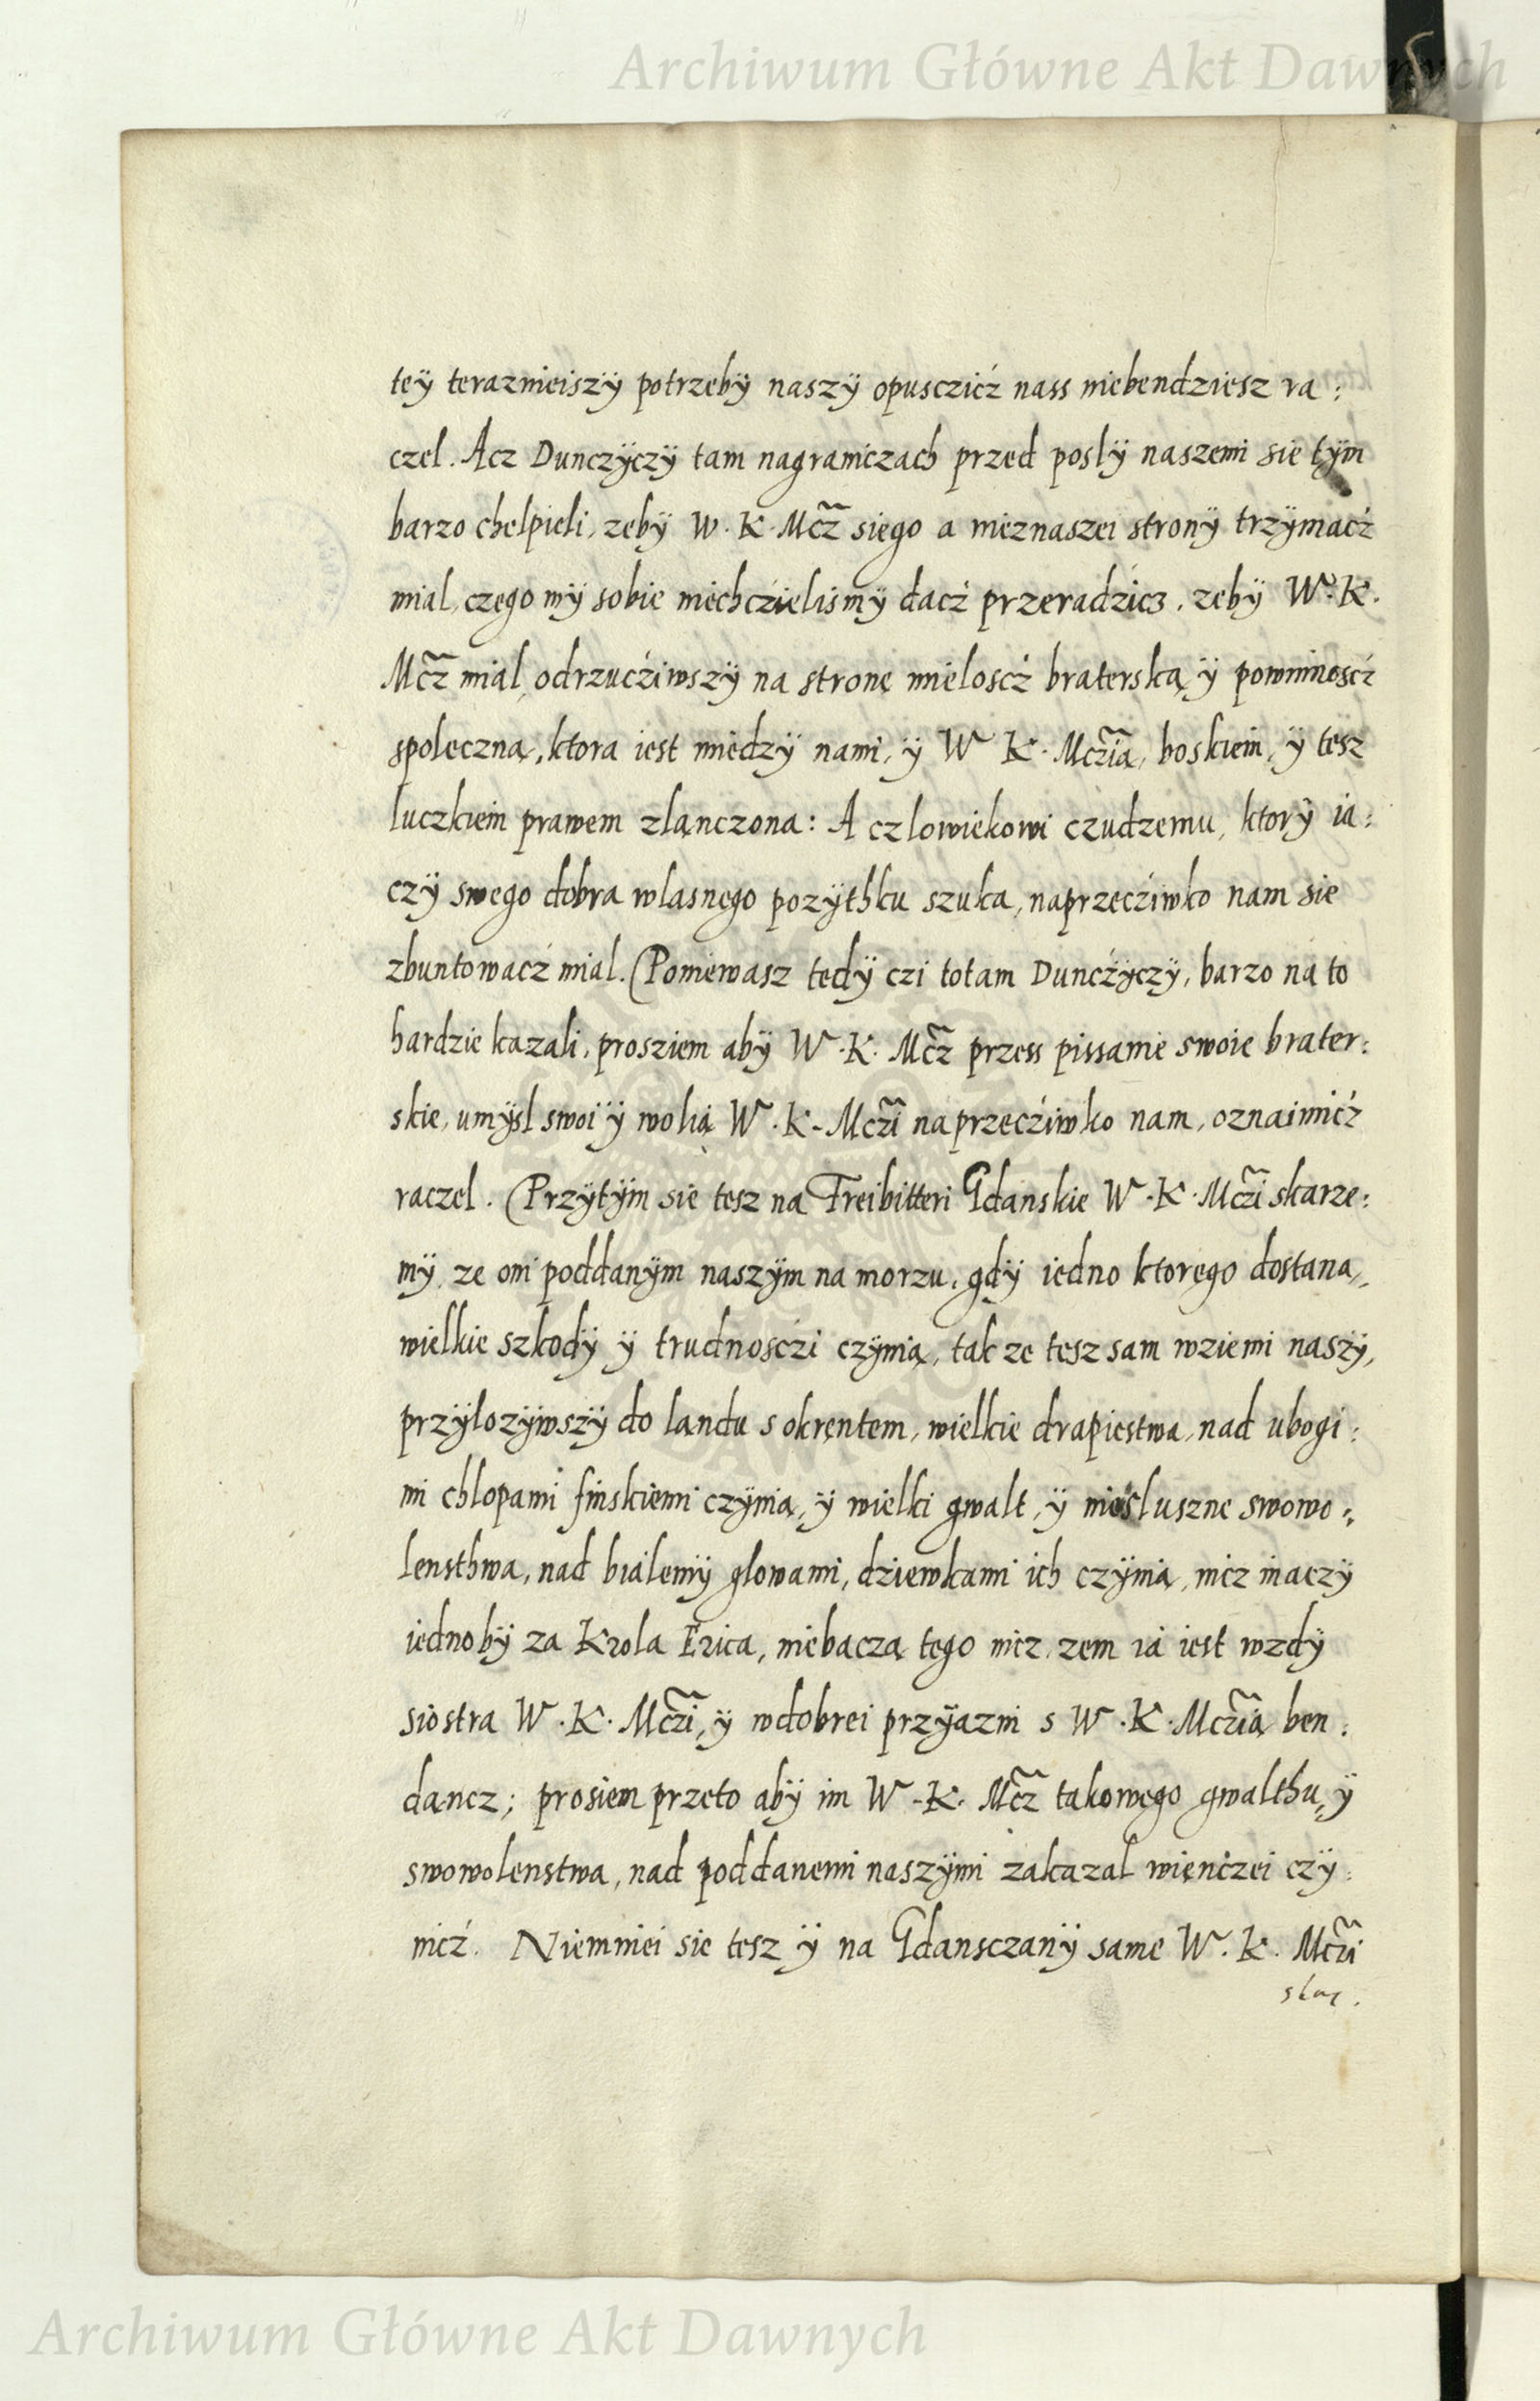 Archiwum Główne Akt Dawnych
teÿ teraznieiszÿ potrzebÿ naszÿ opusczićz nass niebendziesz ra:
czel. Acz Dunczÿczÿ tam nagraniczach przed poslÿ naszemi sie tÿm
barzo chelpieli, zebÿ W. K. Mcz siego a nieznaszei stronÿ trzÿmaćz
mial, czego mÿ sobie niechcźieliśmÿ daćz przeradźicz, zebÿ W. K.
Mcz mial, odrzucźiwszÿ na stronę mieloscż braterską, ÿ powinnosćz
spoleczną, ktora iest miedzÿ nami, ÿ W K. Mczią, boskiem, ÿ tesz
luczkiem prawem zlączona: A czlowiekowi czudzemu, ktorÿ ia:
czÿ swego dobra wlasnego pozÿthku szuka, naprzecźiwko nam sie
zbuntowaćz mial. Poniewasz tedÿ czi totam Dunczÿczÿ, barzo na to
hardzie kazali, prosziem abÿ W. K. Mcz przess pissanie swoie brater:
skie, umÿsl swoi ÿ wolią W. K. Mczi naprzecźiwko nam, oznaimićz
raczel. Przÿtÿm sie tesz na Freibitteri Gdanskie W. K. Mczi skarze:
mÿ, ze oni poddanÿm naszÿm na morzu, gdÿ iedno ktorego dostaną,
wielkie szkodÿ ÿ trudnosćzi czÿnią, tak ze tesz sam wziemi naszÿ,
przÿlozÿwszÿ do lądu s okrętem, wielkie drapiestwa, nad ubogi:
mi chlopami finskiemi czÿnią, ÿ wielki gwalt, ÿ niesluszne swowo:
lensthwa, nad bialemÿ glowami, dziewkami ich czÿnią, nicz inaczÿ
iednobÿ za Krola Erica, niebaczą tego nicz, zem ia iest wzdÿ
siostra W. K. Mczi, ÿ wdobrei przÿazni s W. K. Mczią ben:
dancz; prosiem przeto abÿ im W. K. Mcz takowego gwalthu, ÿ
swowolenstwa, nad poddanemi naszÿmi zakazal wienczei czÿ:
nićz. Niemniei sie tesz ÿ na Gdansczanÿ same W. K. Mczi
skar.
Archiwum Główne Akt Dawnych